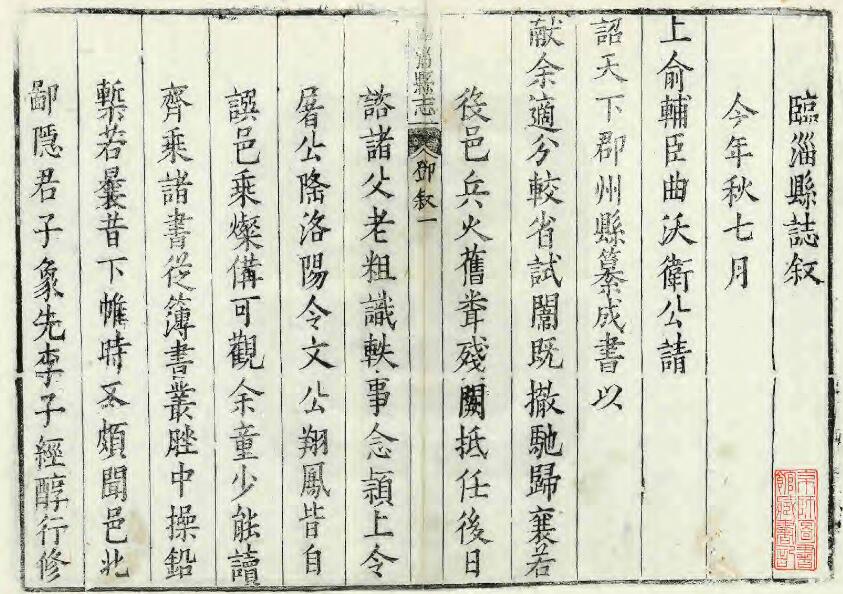 臨淄縣誌叙
今年秋七月
上俞輔臣曲沃衛公請
詔天下郡州縣纂成書以
献余適分較省試闈既撤馳歸襄若
役邑兵火舊残闕抵任後日
淄縣志
叙一
諮諸父老粗識軼事念潁上令
屠公隆洛陽令文公翔鳳皆自
譔邑乘燦備可觀余童少能讀
齊乘諸書從簿書叢脞中操鉛
槧若曩昔下帷時頗聞邑北
鄙隱君子象先李子經醇行修
東北圖書
館藏書